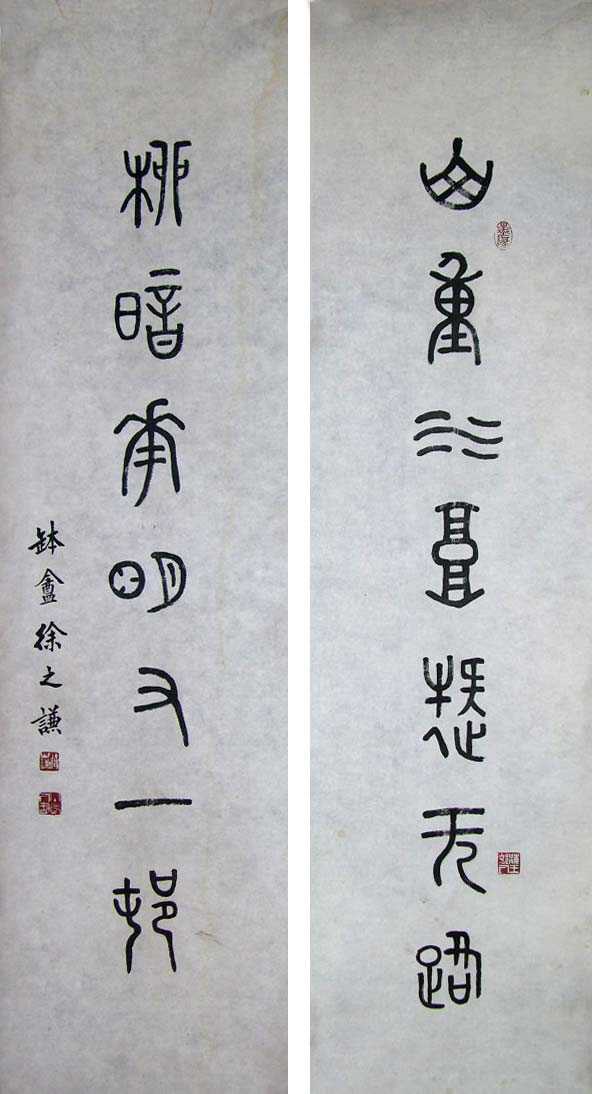 山重水复疑无路
柳暗華明又一邨
缽盦徐之謙